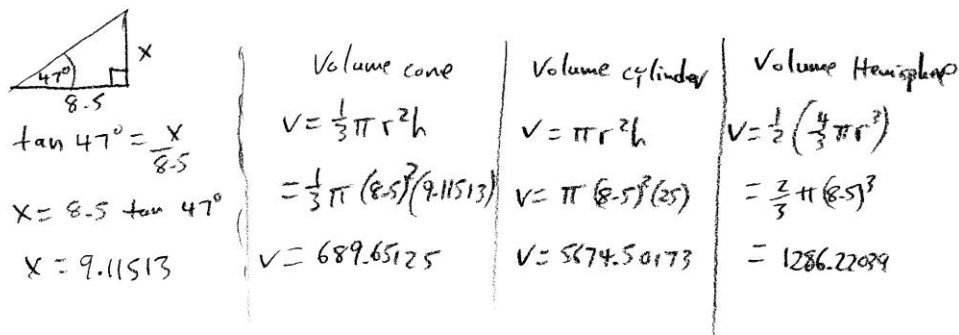 x
47°
8.5
tan 47° = x/8.5
x = 8.5 tan 47°
x = 9.11513
Volume cone
V = 1/3 πr²h
= 1/3 π (8.5)²(9.11513)
V = 689.65125
Volume cylinder
V = πr²h
V = π (8.5)²(25)
V = 5674.50173
Volume Hemisphere
V = 1/2 (4/3 πr³)
= 2/3 π(8.5)³
= 1286.22039